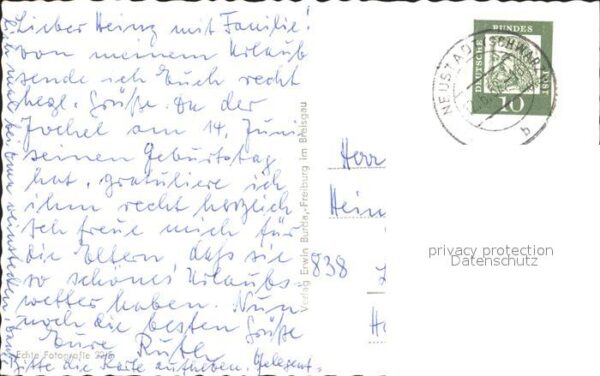 Lieber Heinz mit Familie!
von meinem Urlaub
sende ich Euch recht
hezl. Grüße. Da der
Jochel am 14. Juni
seinen Geburtstag
hat, gratuliere ich
ihm recht herzlich
Ich freue mich für
die Eltern dass sie
so schönes Urlaubs-
wetter haben. Nun
noch die besten Grüße
Eure Ruth
Bitte die Karte aufheben. Gelegent-
Echte Fotografie
Verlag Erwin Burda, Freiburg im Breisgau
DEUTSCHE BUNDESPOST
10
NEUSTADT (SCHWARZW
b
Herr
Hein
838
privacy protection
Datenschutz